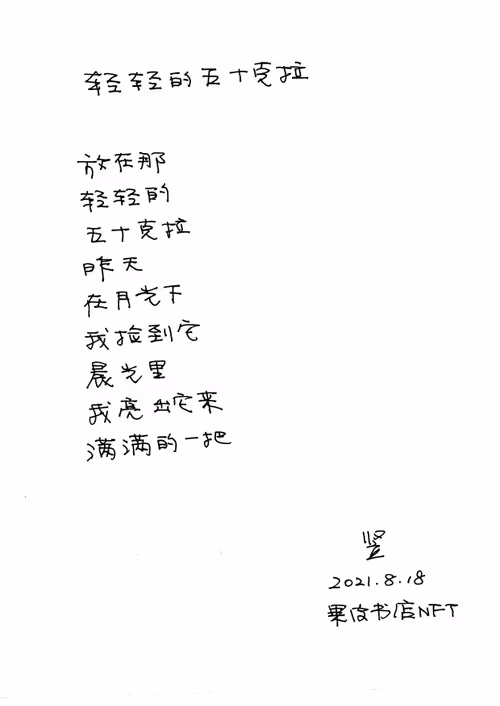 轻轻的五十克拉
放在那
轻轻的
五十克拉
昨天
在月光下
我捡到它
晨光里
我亮出它来
满满的一把
竖
2021.8.18
果皮书店NFT